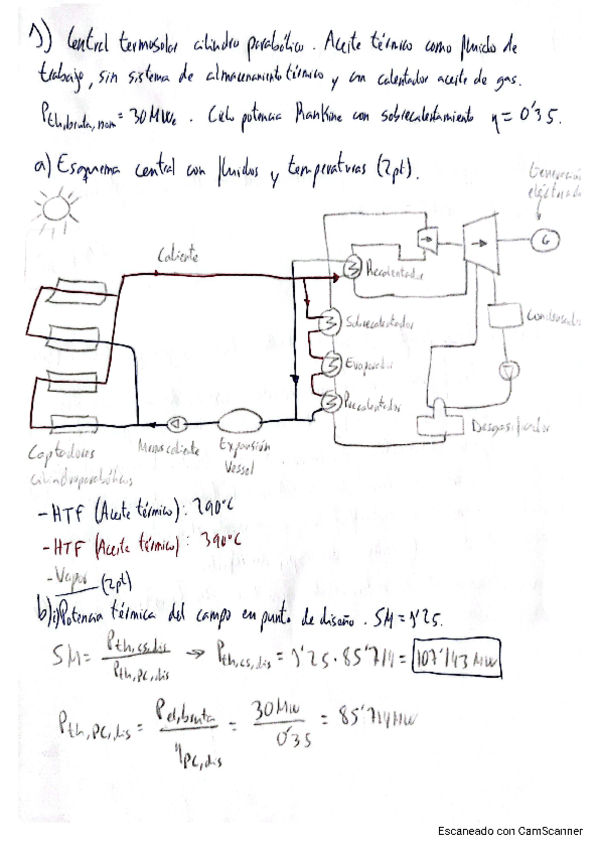 1) Central termosolar cilindro parabólico. Aceite térmico como fluido de
trabajo, sin sistema de almacenamiento térmico y con calentador aceite de gas.
Pth,bruta,nom = 30 MWe. Ciclo potencia Rankine con sobrecalentamiento η = 0'35.
a) Esquema central con fluidos y temperaturas (2pt).
Generación
eléctrica
Caliente
G
Recalentador
Sobrecalentador
Condensador
Evaporador
Precalentador
Desgasificador
Menos caliente
Expansión
Vessel
Captadores
cilindroparabólicos
- HTF (Aceite térmico): 290°C
- HTF (Aceite térmico): 390°C
- Vapor
(2pt)
b) i) Potencia térmica del campo en punto de diseño. SM = 1'25.
SM = Pth,cs,dis / Pth,PC,dis → Pth,cs,dis = 1'25 · 85'714 = 107'143 MW
Pth,PC,dis = Pel,bruta / ηPC,dis = 30 MW / 0'35 = 85'714 MW
Escaneado con CamScanner